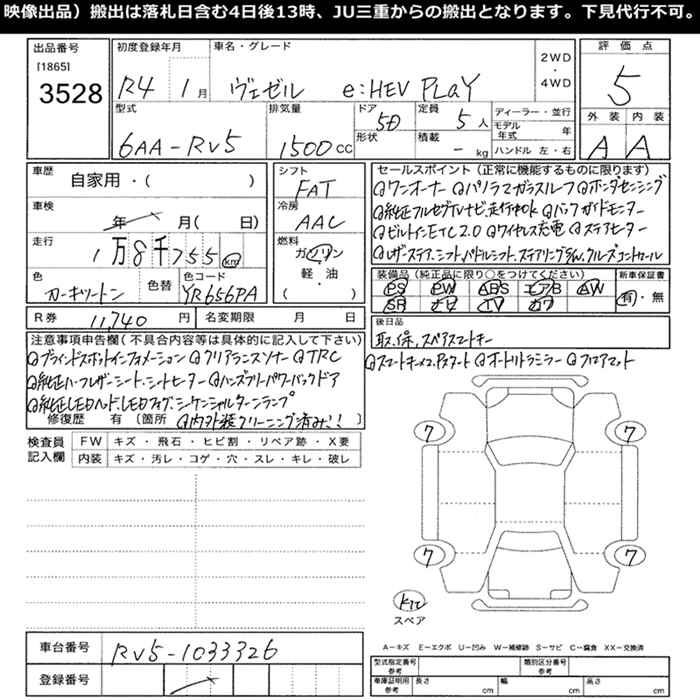 映像出品）搬出は落札日含む4日後13時、JU三重からの搬出となります。下見代行不可。
出品番号
[1865]
3528
初度登録年月
R4 1月
車名・グレード
ヴェゼル e:HEV PLaY
2WD
・
4WD
評価点
5
型式
6AA-RV5
排気量
1500 CC
ドア
5D
形状
定員
5人
積載
- kg
ディーラー・並行
モデル年式 年
ハンドル 左・右
外装 内装
A A
車歴
自家用・( )
車検
年 月( 日)
走行
1万8千755 km
色
カーキツートン
色替
色コード
YR656PA
シフト
FAT
冷房
AAC
燃料
ガソリン
軽・油
( )
セールスポイント(正常に機能するものに限ります)
@ワンオーナー @パノラマガラスルーフ @ホンダセンシング
@純正フルセグTVナビ,走行中OK @バックガイドモニター
@ビルトインETC2.0 @ワイヤレス充電 @ステアヒーター
@レザーステア,シフト,パドルシフト,ステアリングSW,クルーズコントロール
装備品(純正品に限り○をつけてください)
PS PW ABS エアB AW
SR ナビ TV カワ
新車保証書
有・無
R券 11,740円
名変期限 月 日
後日品
取,保,スペアスマートキー
注意事項申告欄(不具合内容等は具体的に記入して下さい)
@ブラインドスポットインフォメーション @クリアランスソナー @TRC
@純正ハーフレザーシート,シートヒーター @ハンズフリーパワーバックドア
@純正LEDヘッド,LEDフォグ,シーケンシャルターンランプ
修復歴 有 [箇所 @内外装クリーニング済み!! ]
@スマートキー×2,Pスタート @オートリトラミラー @フロアマット
検査員記入欄
FW キズ・飛石・ヒビ割・リペア跡・X要
内装 キズ・汚レ・コゲ・穴・スレ・キレ・破レ
7 7
7 7
スペア
車台番号 RV5-1033326
登録番号
A－キズ E－エクボ U－凹み W－補修跡 S－サビ C－腐食 XX－交換済
型式指定番号
参考
類別区分番号
参考
車庫証明用
参考
長さ cm 幅 cm 高さ cm